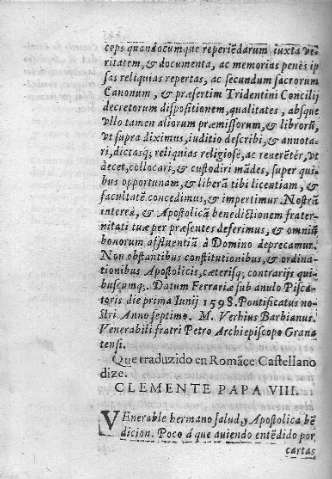 ceps quandocumque reperiẽdarum iuxta ve-
ritatem, & documenta, ac memorias penès ip
sas reliquias repertas, ac secundum sacrorum
Canonum, & præsertim Tridentini Concilij
decretorum dispositionem, qualitates, absque
vllo tamen aliorum præmissorum, & librorũ,
vt supra diximus, iuditio describi, & annota-
ri, dictasq; reliquias religiosè, ac reuerẽtèr, vt
decet, collocari, & custodiri mãdes, super qui-
bus opportunam, & liberã tibi licentiam, &
facultatẽ concedimus, & impertimur. Nostrã
intereà, & Apostolicã benedictionem frater-
nitati tuæ per præsentes deferimus, & omniũ
bonorum affluentiã à Domino deprecamur.
Non obstantibus constitutionibus, & ordina-
tionibus Apostolicis, cæterisq; contrarijs qui-
buscumq;. Datum Ferrariæ sub anulo Pisca-
toris die prima Iunij 1598. Pontificatus no-
stri Anno septimo. M. Vestrius Barbianus.
Venerabili fratri Petro Archiepiscopo Grana
tensi.
Que traduzido en Romãce Castellano
dize.
CLEMENTE PAPA VIII.
VEnerable hermano salud, y Apostolica bẽ
dicion. Poco à que auiendo entẽdido por
cartas